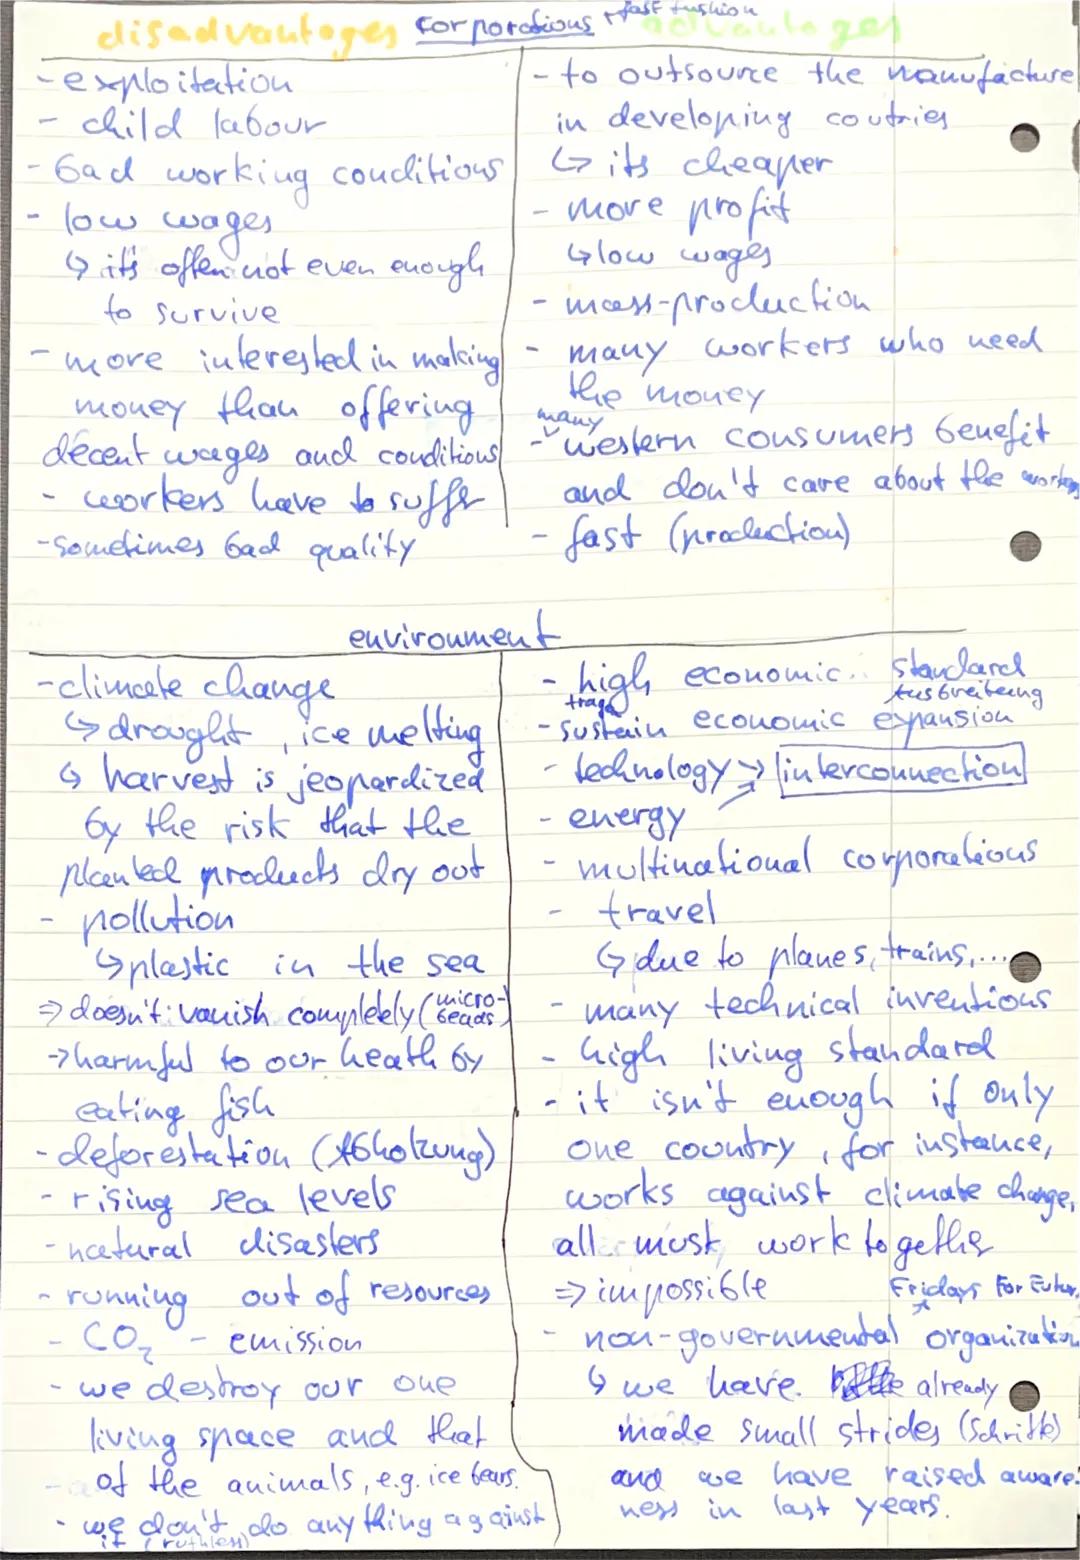 disadvantages corporations + fast fashion advantages
- exploitation
- child labour
- bad working conditions
- low wages
↳ it's often not even enough
to survive
- more interested in making
money than offering
decent wages and conditions
- workers have to suffer
- sometimes bad quality
- to outsource the manufacture
in developing coutries
↳ its cheaper
- more profit
↳ low wages
- mass-production
- many workers who need
the money
- many western consumers benefit
and don't care about the workers
- fast (production)
environment
- climate change
↳ drought, ice melting
↳ harvest is jeopardized
by the risk that the
planted products dry out
- pollution
↳ plastic in the sea
⇒ doesn't vanish completely (micro-
beads)
→ harmful to our heath by
eating fish
- deforestation (Abholzung)
- rising sea levels
- natural disasters
- running out of resources
- CO₂ - emission
- we destroy our one
living space and that
of the animals, e.g. ice bears.
- we don't do anything against
it (ruthless)
- high economic standard
Ausbreitung
- sustain economic expansion
- technology → interconnection
- energy
- multinational corporations
- travel
↳ due to planes, trains,...
- many technical inventions
- high living standard
- it isn't enough if only
one country, for instance,
works against climate change,
all must work together
⇒ impossible
Fridays For Futur
- non-governmental organization
↳ we have already
made small strides (Schritte)
and we have raised aware-
ness in last years.